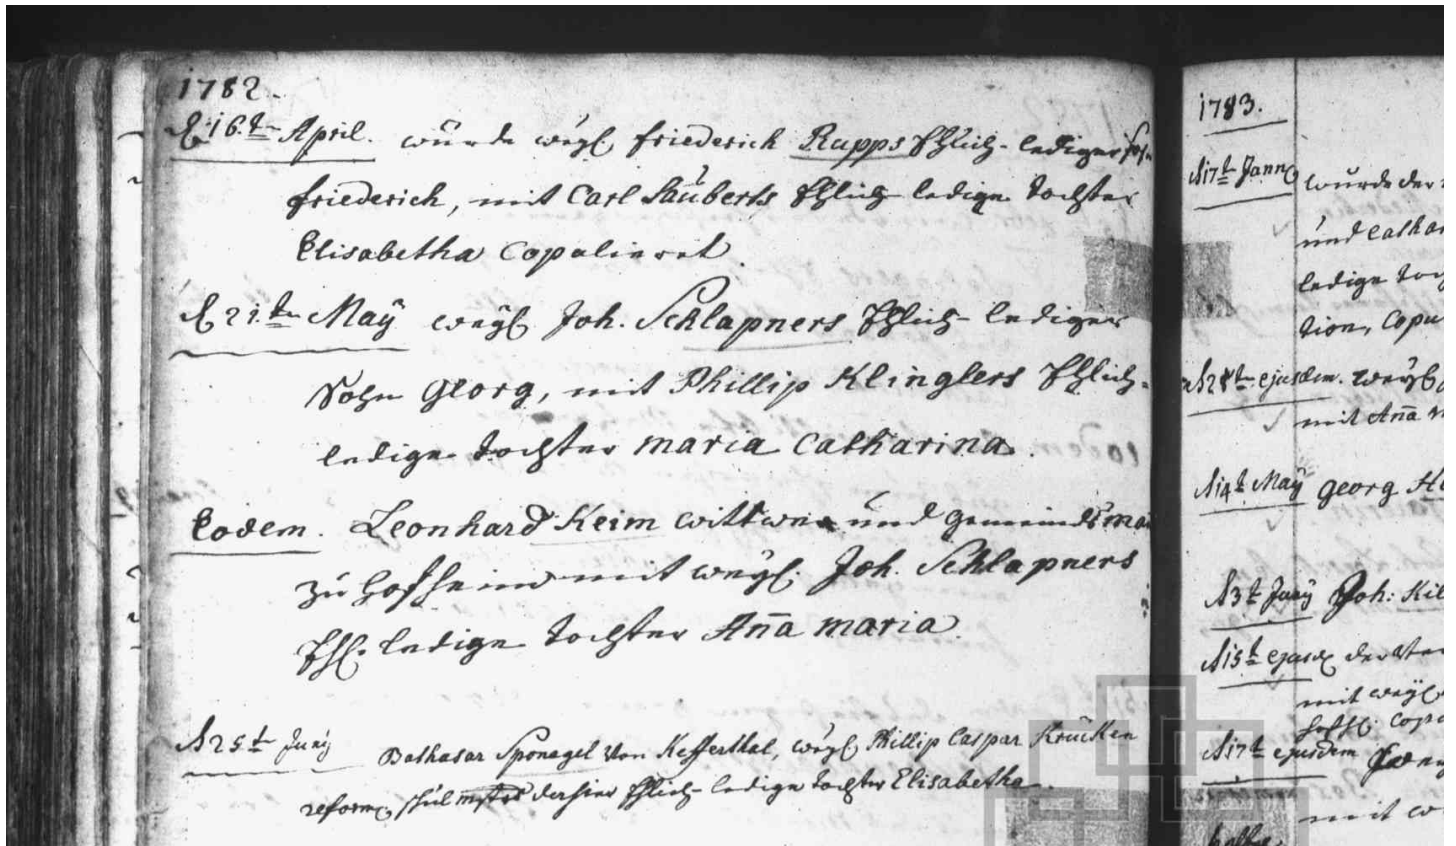 1782.
d. 16.t April. wurde weyl. friederich Rupps Ehlich- lediger Sohn
friederich, mit Carl Säuberts Ehlich ledige tochter
Elisabetha Copulieret.
d. 21.t May weyl. Joh. Schlapners Ehlich- lediger
Sohn Georg, mit Phillip Klinglers Ehlich-
ledige tochter maria Catharina.
Eodem. Leonhard Keim wittwer und gemeindsma
zu Hofheim mit weyl. Joh. Schlapners
Ehl. ledige tochter Ana maria.
d 25t Juny Balthasar Sponagel von Kefferthal, weyl. Phillip Caspar Krücken
reform. schul dahier Ehlich- ledige tochter Elisabetha.
1783.
d 17t wurde der
und Cathar
ledige toch
tion, Copu
d 28t ejusdem. weyl.
mit Ana
d 14t May georg
d 3t Juny Joh: Kil
d 15t
mit weyl.
Copu
d 17t ejusdem
mit